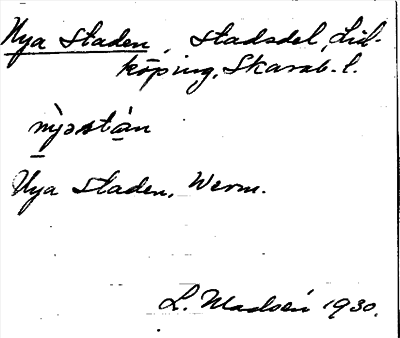 Nya Staden, Stadsdel, Lid-
köping, Skarab. l.
nỳəstàn
Nya Staden, Werm.
L. Madsén 1930.